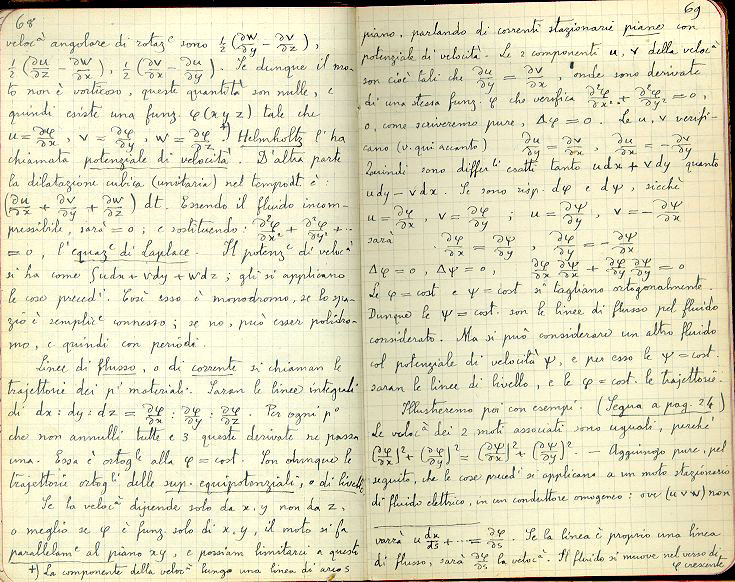 68
veloc.à angolare di rotaz.e sono ½(∂w/∂y − ∂v/∂z),
½(∂u/∂z − ∂w/∂x), ½(∂v/∂x − ∂u/∂y). Se dunque il mo-
to non è vorticoso, queste quantità son nulle, e
quindi esiste una funz. φ(xyz) tale che
u = ∂φ/∂x, v = ∂φ/∂y, w = ∂φ/∂z +) Helmholtz l'ha
chiamata potenziale di velocità. D'altra parte
la dilatazione cubica (unitaria) nel tempo dt è:
(∂u/∂x + ∂v/∂y + ∂w/∂z) dt. Essendo il fluido incom-
pressibile, sarà = 0; e sostituendo: ∂²φ/∂x² + ∂²φ/∂y² + ..
= 0, l'equaz.e di Laplace. Il potenz.e di veloc.à
si ha come ∫udx + vdy + wdz; gli si applicano
le cose preced.i. Così esso è monodromo, se lo spa-
zio è semplic.e connesso; se no, può esser polidro-
mo, e quindi con periodi.
Linee di flusso, o di corrente si chiaman le
trajettorie dei p.i materiali. Saran le linee integrali
di dx : dy : dz = ∂φ/∂x : ∂φ/∂y : ∂φ/∂z. Per ogni p.o
che non annulli tutte e 3 queste derivate ne passa
una. Essa è ortog.le alla φ = cost. Son dunque le
trajettorie ortog.li delle sup. equipotenziali, o di livello
Se la veloc.à dipende solo da x, y non da z,
o meglio se φ è funz. solo di x, y, il moto si fa
parallelam.e al piano xy, e possiam limitarci a questo
+) La componente della veloc.à lungo una linea di arco s
69
piano, parlando di correnti stazionarie piane con
potenziale di velocità. Le 2 componenti u, v della veloc.à
son cioè tali che ∂u/∂y = ∂v/∂x, onde sono derivate
di una stessa funz. φ che verifica ∂²φ/∂x² + ∂²φ/∂y² = 0,
o, come scriveremo pure, Δφ = 0. Le u, v verifi-
cano (v. qui accanto) ∂u/∂y = ∂v/∂x, ∂u/∂x = −∂v/∂y
Quindi sono differ.li esatti tanto udx + vdy quanto
udy − vdx. Se sono risp. dφ e dψ, sicchè
u = ∂φ/∂x, v = ∂φ/∂y; u = ∂ψ/∂y, v = −∂ψ/∂x
sarà ∂φ/∂x = ∂ψ/∂y, ∂φ/∂y = −∂ψ/∂x
Δφ = 0, Δψ = 0, ∂φ/∂x ∂ψ/∂x + ∂φ/∂y ∂ψ/∂y = 0
Le φ = cost e ψ = cost si tagliano ortogonalmente.
Dunque le ψ = cost. son le linee di flusso pel fluido
considerato. Ma si può considerare un altro fluido
col potenziale di velocità ψ, e per esso le ψ = cost.
saran le linee di livello, e le φ = cost. le trajettorie.
Illustreremo poi con esempi. (Segua a pag. 24)
Le veloc.à dei 2 moti associati sono uguali, perchè
(∂φ/∂x)² + (∂φ/∂y)² = (∂ψ/∂x)² + (∂ψ/∂y)². — Aggiungo pure, pel
seguito, che le cose preced.i si applicano a un moto stazionario
di fluido elettrico, in un conduttore omogeneo: ove (u v w) non
varrà u dx/ds + ... = ∂φ/∂s. Se la linea è proprio una linea
di flusso, sarà ∂φ/∂s la veloc.à. Il fluido si muove nel verso di
φ crescente